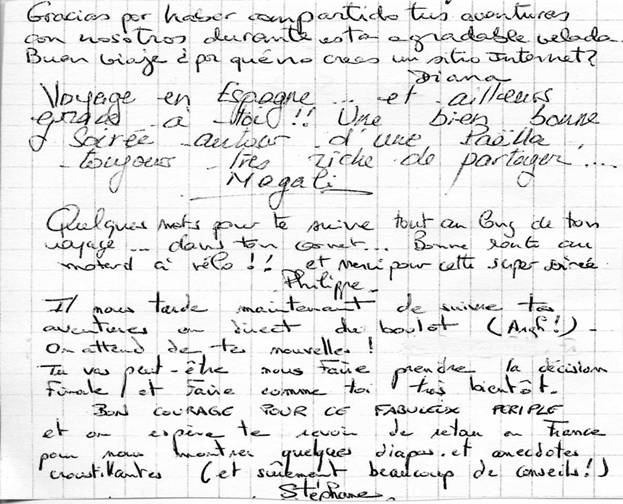 Gracias por haber compartido tus aventures
con nosotros durante esta agradable velada.
Buen viaje ¿ por qué no creas un sitio Internet?
Diana
Voyage en Espagne ... et ailleurs
grâce à toi !! Une bien bonne
soirée autour d'une Paëlla,
toujours très riche de partager ...
Magali
Quelques mots pour te suivre tout au long de ton
voyage ... dans ton carnet ... Bonne route au
motard à vélo !! et merci pour cette super soirée.
Philippe
Il nous tarde maintenant de suivre tes
aventures en direct du boulot (Argh !) -
On attend de tes nouvelles !
Tu vas peut-être nous faire prendre la décision
Finale et faire comme toi très bientôt.
BON COURAGE POUR CE FABULEUX PERIPLE
et on espère te revoir de retour en France
pour nous montrer quelques diapos et anecdotes
croustillantes (et sûrement beaucoup de conseils !)
Stéphane